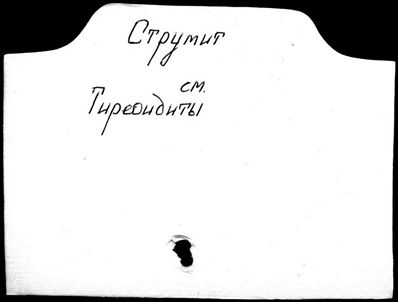 Струмит
см.
Тиреоидиты